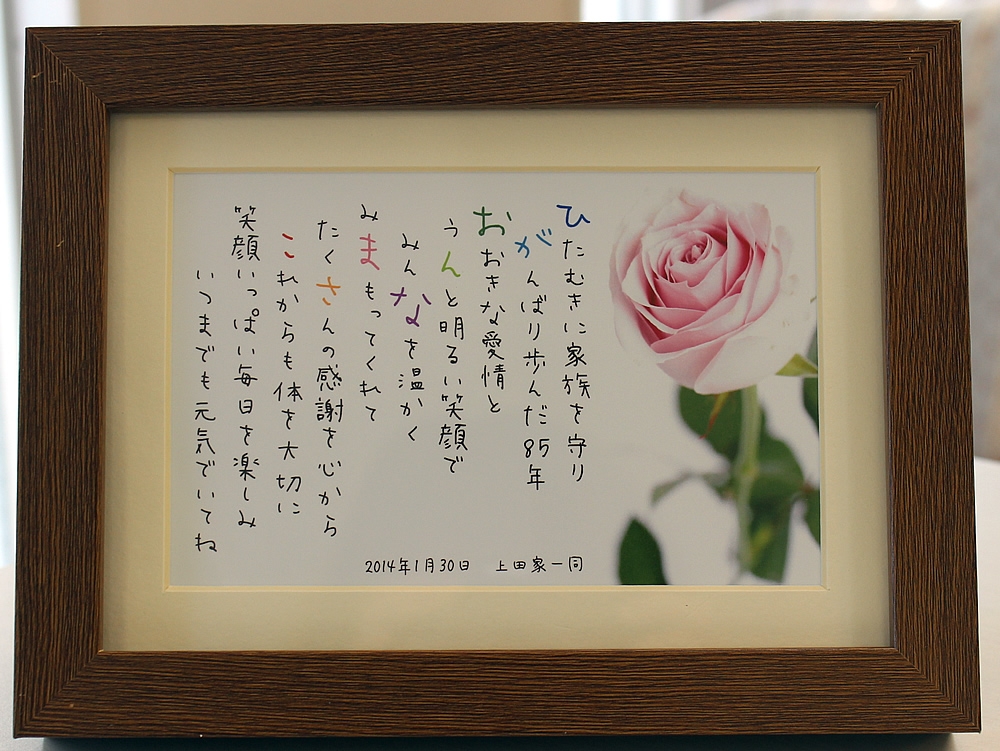 ひたむきに家族を守り
がんばり歩んだ85年
おおきな愛情と
うんと明るい笑顔で
みんなを温かく
みまもってくれて
たくさんの感謝を心から
これからも体を大切に
笑顔いっぱい毎日を楽しみ
いつまでも元気でいてね
2014年1月30日 上田家一同